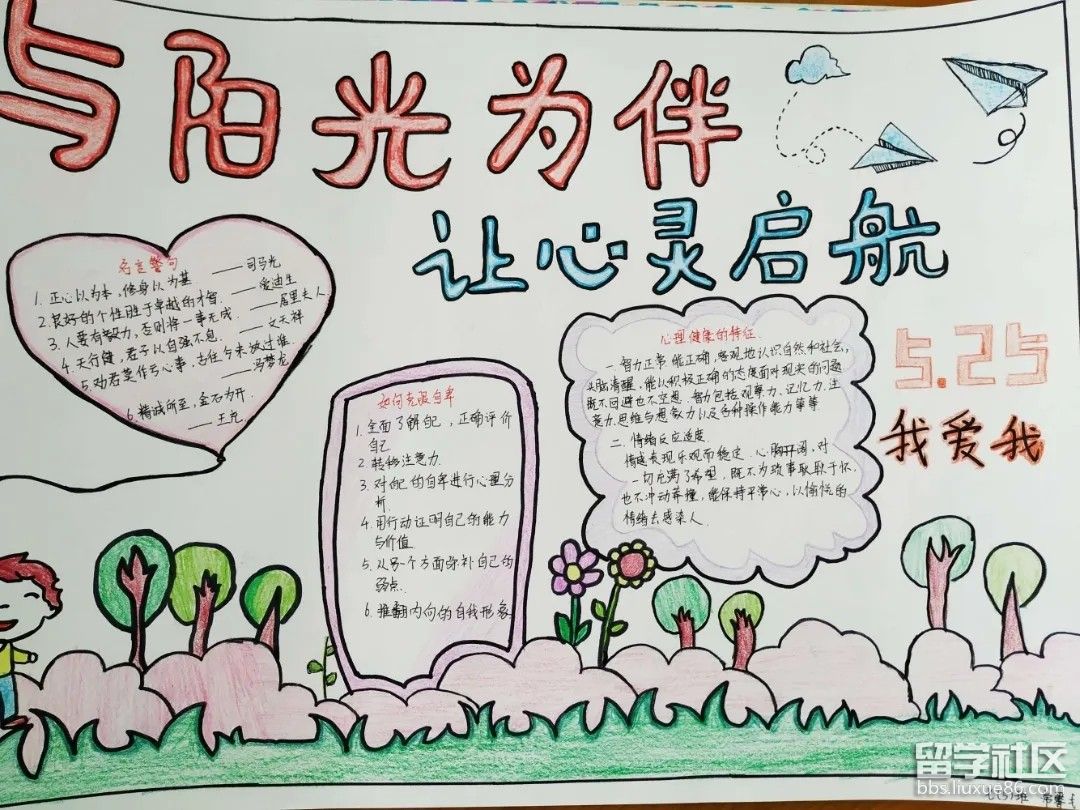 与阳光为伴
让心灵启航
名言警句
1. 正心以为本,修身以为基 ——司马光
2. 良好的个性胜于卓越的才智. ——爱迪生
3. 人要有毅力,否则将一事无成. ——居里夫人
4. 天行健,君子以自强不息. ——文天祥
5. 劝君莫作亏心事,古往今来放过谁. ——冯梦龙
6. 精诚所至,金石为开.
——王充
如何克服自卑
1. 全面了解自己,正确评价
自己
2. 转移注意力.
3. 对自己的自卑进行心理分
析.
4. 用行动证明自己的能力
与价值
5. 从另一个方面弥补自己的
弱点.
6. 推翻内向的自我形象
心理健康的特征.
一. 智力正常 能正确,客观地认识自然和社会,
头脑清醒,能以积极正确的态度面对现实的问题
既不回避也不空想. 智力包括观察力、记忆力、注
意力、思维与想象力以及各种操作能力等等
二. 情绪反应适度
情感表现乐观而稳定、心胸开阔,对
一切充满了希望,既不为琐事耿耿于怀,
也不冲动莽撞,能保持平常心,以愉悦的
情绪去感染人.
5.25
我爱我
留学社区
bbs.liuxue86.com